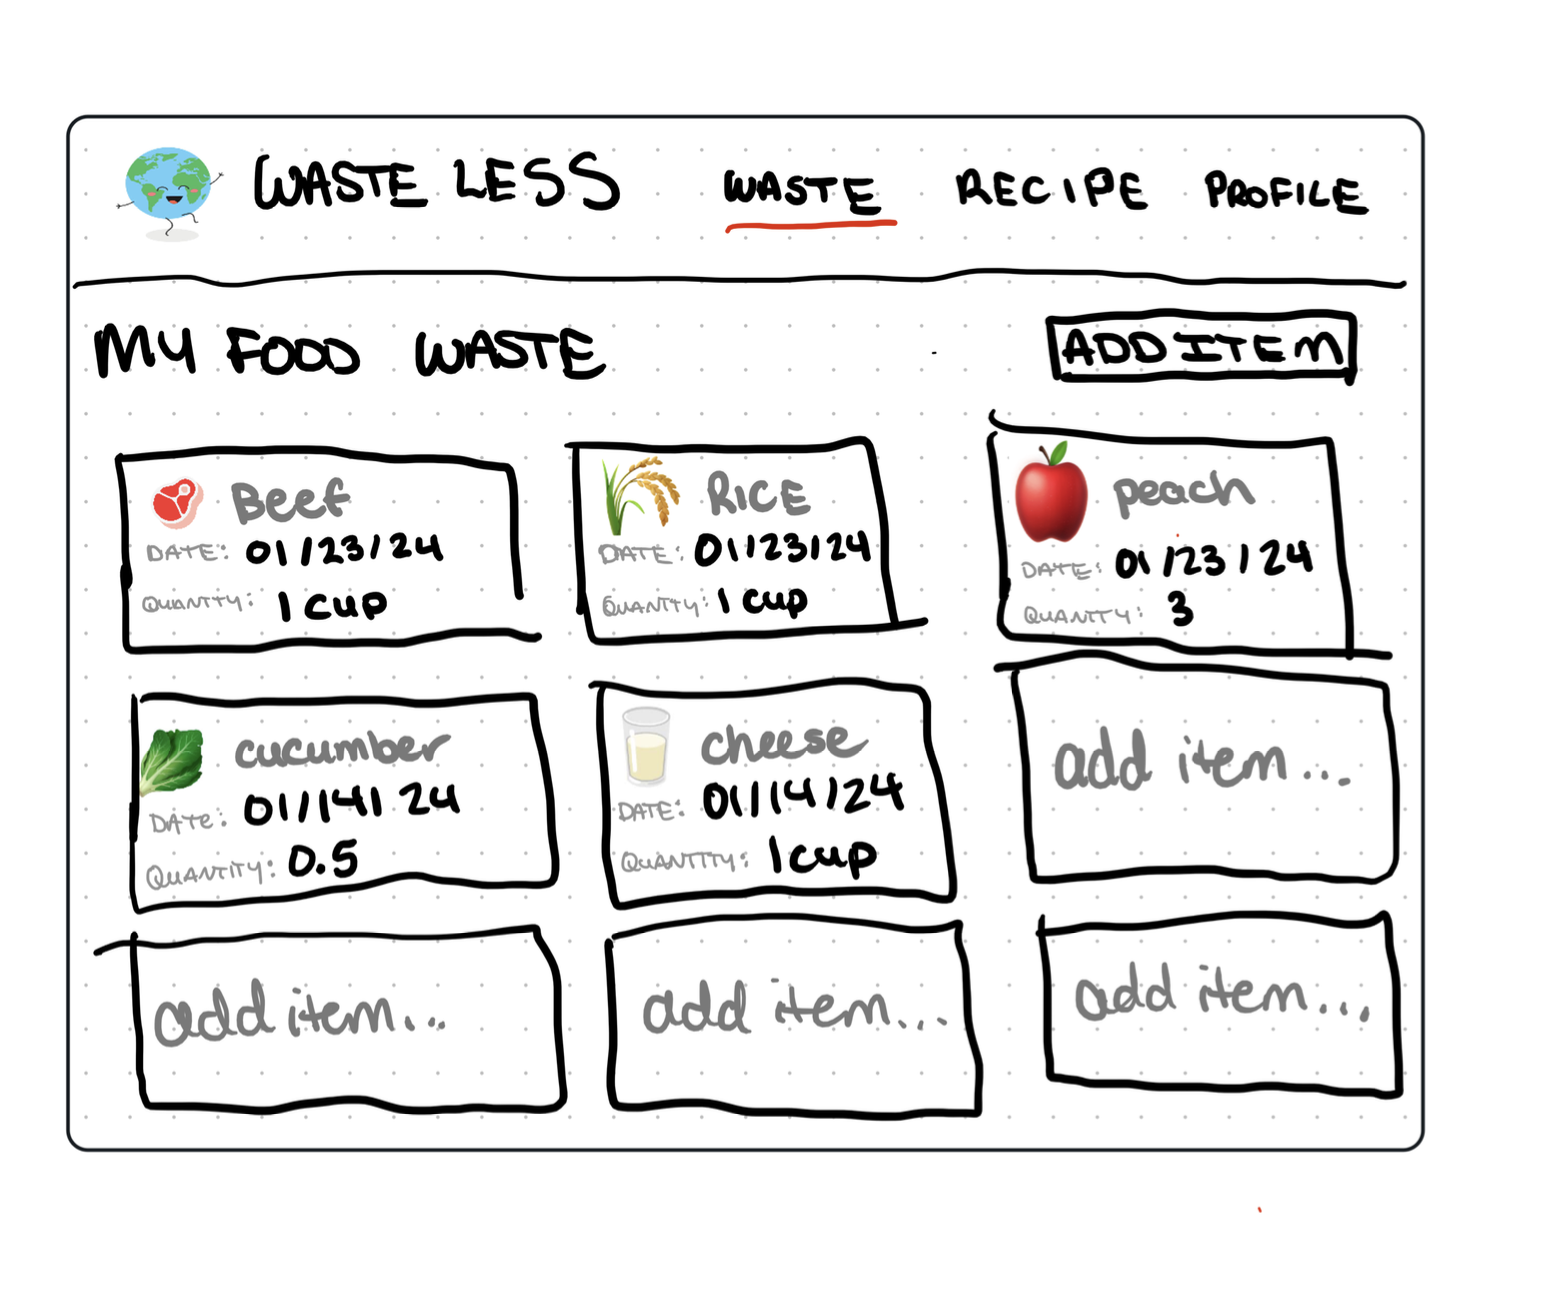 WASTE LESS WASTE RECIPE PROFILE
MY FOOD WASTE ADD ITEM
Beef
DATE: 01/23/24
QUANTITY: 1 cup
RICE
DATE: 01/23/24
QUANTITY: 1 cup
peach
DATE: 01/23/24
QUANTITY: 3
cucumber
DATE: 01/14/24
QUANTITY: 0.5
cheese
DATE: 01/14/24
QUANTITY: 1 cup
add item...
add item...
add item...
add item...